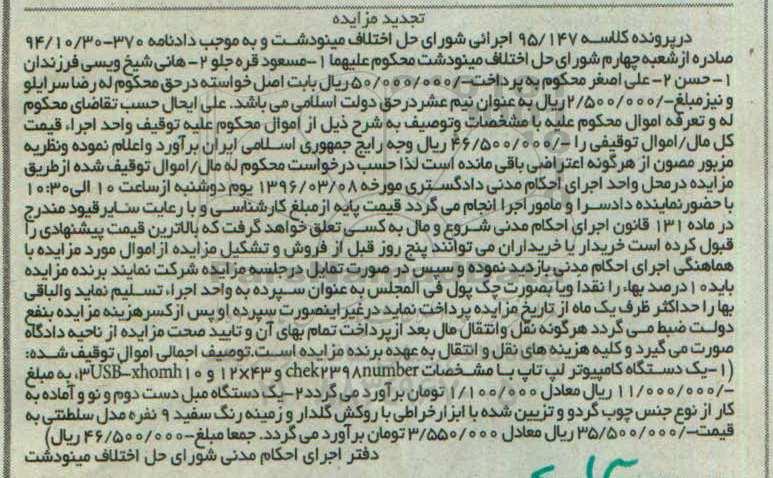 تجدید مزایده
درپرونده کلاسه ۹۵/۱۴۷ اجرائی شورای حل اختلاف مینودشت و به موجب دادنامه ۳۷۰-۹۴/۱۰/۳۰
صادره ازشعبه چهارم شورای حل اختلاف مینودشت محکوم علیهما ۱-مسعود قره جلو ۲- هانی شیخ ویسی فرزندان
۱- حسن ۲- علی اصغر محکوم به پرداخت-/۵۰/۰۰۰/۰۰۰ ریال بابت اصل خواسته درحق محکوم له رضا سرایلو
و نیز مبلغ-/۲/۵۰۰/۰۰۰ ریال به عنوان نیم عشر درحق دولت اسلامی می باشد. علی ایحال حسب تقاضای محکوم
له و تعرفه اموال محکوم علیه با مشخصات وتوصیف به شرح ذیل از اموال محکوم علیه توقیف واحد اجرا، قیمت
کل مال/اموال توقیفی را -/۴۶/۵۰۰/۰۰۰ ریال وجه رایج جمهوری اسلامی ایران برآورد واعلام نموده ونظریه
مزبور مصون از هرگونه اعتراضی باقی مانده است لذا حسب درخواست محکوم له مال/اموال توقیف شده ازطریق
مزایده درمحل واحد اجرای احکام مدنی دادگستری مورخه ۱۳۹۶/۰۳/۰۸ یوم دوشنبه ازساعت ۱۰ الی ۱۰:۳۰
با حضور نماینده دادسرا و مامور اجرا انجام می گردد قیمت پایه ازمبلغ کارشناسی و با رعایت سایر قیود مندرج
در ماده ۱۳۱ قانون اجرای احکام مدنی شروع و مال به کسی تعلق خواهد گرفت که بالاترین قیمت پیشنهادی را
قبول کرده است خریدار یا خریداران می توانند پنج روز قبل از فروش و تشکیل مزایده ازاموال مورد مزایده با
هماهنگی اجرای احکام مدنی بازدید نموده و سپس در صورت تمایل درجلسه مزایده شرکت نمایند برنده مزایده
باید۱۰درصد بها، را نقدا ویا بصورت چک پول فی المجلس به عنوان سپرده به واحد اجرا، تسلیم نماید والباقی
بها را حداکثر ظرف یک ماه از تاریخ مزایده پرداخت نماید درغیراینصورت سپرده او پس ازکسرهزینه مزایده بنفع
دولت ضبط می گردد هرگونه نقل وانتقال مال بعد ازپرداخت تمام بهای آن و تایید صحت مزایده از ناحیه دادگاه
صورت می گیرد و کلیه هزینه های نقل و انتقال به عهده برنده مزایده است.توصیف اجمالی اموال توقیف شده:
(۱-یک دستگاه کامپیوتر لپ تاپ با مشخصات chek۲۳۹۸number و۱۲X۴۳ و ۳USB–xhomh۱۰، به مبلغ
-/۱۱/۰۰۰/۰۰۰ ریال معادل ۱/۱۰۰/۰۰۰ تومان برآورد می گردد۲-یک دستگاه مبل دست دوم و نو و آماده به
کار از نوع جنس چوب گردو و تزیین شده با ابزار خراطی با روکش گلدار و زمینه رنگ سفید ۹ نفره مدل سلطنتی به
قیمت-/۳۵/۵۰۰/۰۰۰ ریال معادل ۳/۵۵۰/۰۰۰ تومان برآورد می گردد. جمعا مبلغ-۴۶/۵۰۰/۰۰۰ ریال)
دفتر اجرای احکام مدنی شورای حل اختلاف مینودشت